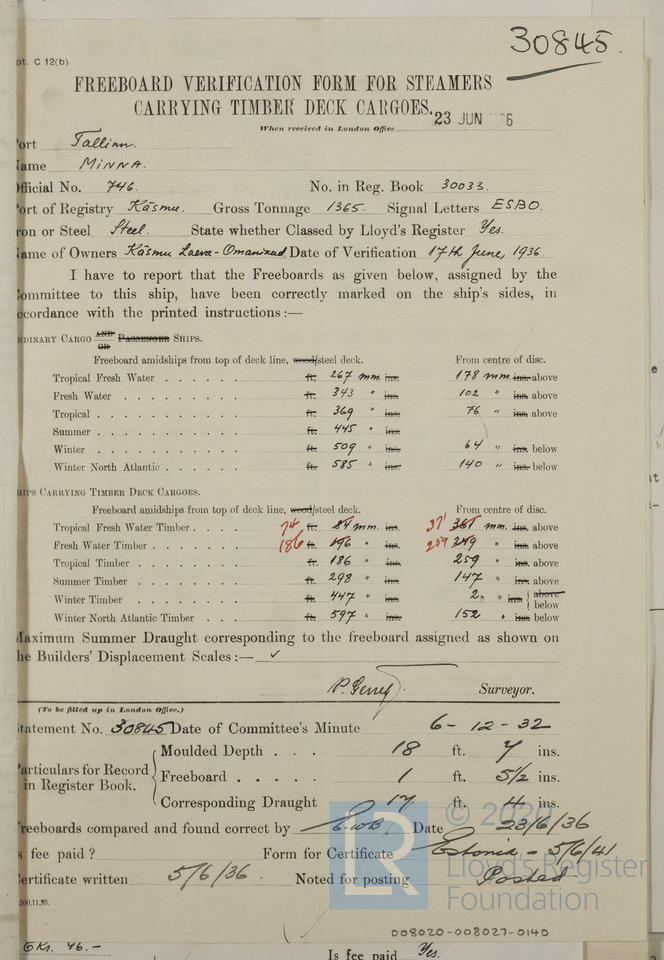 30845.
pt. C 12(b).
FREEBOARD VERIFICATION FORM FOR STEAMERS
CARRYING TIMBER DECK CARGOES.
23 JUN 6
When received in London Office
ort Tallinn.
ame MINNA.
fficial No. 746. No. in Reg. Book 30033.
ort of Registry Käsmu. Gross Tonnage 1365. Signal Letters ESBO.
ron or Steel Steel. State whether Classed by Lloyd's Register Yes.
ame of Owners Käsmu Laeva-Omanikud Date of Verification 17th June, 1936
I have to report that the Freeboards as given below, assigned by the
ommittee to this ship, have been correctly marked on the ship's sides, in
ccordance with the printed instructions:—
RDINARY CARGO AND OR PASSENGER SHIPS.
Freeboard amidships from top of deck line, wood/steel deck. From centre of disc.
Tropical Fresh Water . . . . . . ft. 267 mm. ins. 178 mm. ins. above
Fresh Water . . . . . . . . . ft. 343 " ins. 102 " ins. above
Tropical . . . . . . . . . . ft. 369 " ins. 76 " ins. above
Summer . . . . . . . . . . ft. 445 " ins.
Winter . . . . . . . . . . ft. 509 " ins. 64 " ins. below
Winter North Atlantic . . . . . . ft. 585 " ins. 140 " ins. below
HIPS CARRYING TIMBER DECK CARGOES.
Freeboard amidships from top of deck line, wood/steel deck. From centre of disc.
Tropical Fresh Water Timber . . . . 74 ft. 84 mm. ins. 371 361 mm. ins. above
Fresh Water Timber . . . . . . . 186 ft. 196 " ins. 259 249 " ins. above
Tropical Timber . . . . . . . . ft. 186 " ins. 259 " ins. above
Summer Timber . . . . . . . . ft. 298 " ins. 147 " ins. above
Winter Timber . . . . . . . . ft. 447 " ins. 2. " ins. above below
Winter North Atlantic Timber . . . ft. 597 " ins. 152 " ins. below
Maximum Summer Draught corresponding to the freeboard assigned as shown on
he Builders' Displacement Scales:— ✓
Surveyor.
(To be filled up in London Office.)
tatement No. 30845 Date of Committee's Minute 6-12-32
Moulded Depth . . . 18 ft. 7 ins.
articulars for Record in Register Book.
Freeboard . . . . . 1 ft. 5½ ins.
Corresponding Draught 17 ft. 4 ins.
reeboards compared and found correct by Date 23/6/36
s fee paid ? Form for Certificate Estonia - 5/6/41
ertificate written 5/6/36 Noted for posting Posted
LR © 2020 Lloyd's Register Foundation
008020-008027-0140
Kr. 46.-
Is fee paid Yes.